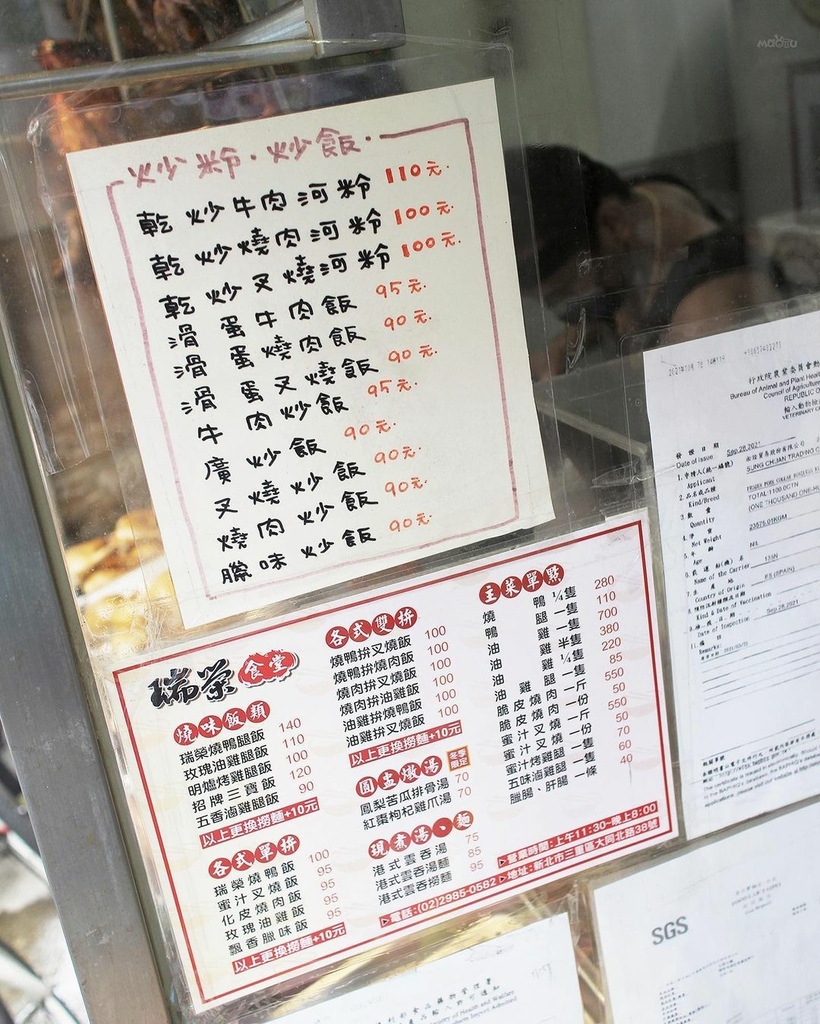 MAOTU
炒粉·炒飯·
乾炒牛肉河粉 110元.
乾炒燒肉河粉 100元.
乾炒叉燒河粉 100元.
滑蛋牛肉飯 95元.
滑蛋燒肉飯 90元.
滑蛋叉燒飯 90元.
牛肉炒飯 95元.
廣炒飯 90元.
叉燒炒飯 90元.
燒肉炒飯 90元.
臘味炒飯 90元.
瑞榮食堂
燒味飯類
瑞榮燒鴨腿飯 140
玫瑰油雞腿飯 110
明爐烤雞腿飯 100
招牌三寶飯 120
五香滷雞腿飯 90
以上更換撈麵+10元
各式單拚
瑞榮燒鴨飯 100
蜜汁叉燒飯 95
化皮燒肉飯 95
玫瑰油雞飯 95
飄香臘味飯 95
以上更換撈麵+10元
各式雙拚
燒鴨拚叉燒飯 100
燒鴨拚燒肉飯 100
燒肉拚叉燒飯 100
燒肉拚油雞飯 100
油雞拚燒鴨飯 100
油雞拚叉燒飯 100
以上更換撈麵+10元
圓盅燉湯 冬季限定
鳳梨苦瓜排骨湯 70
紅棗枸杞雞爪湯 70
現煮湯、麵
港式雲吞湯 75
港式雲吞湯麵 85
港式雲吞撈麵 95
主菜單點
燒鴨¼隻 280
鴨腿一隻 110
油雞一隻 700
油雞半隻 380
油雞¼隻 220
油雞腿一隻 85
脆皮燒肉一斤 550
脆皮燒肉一份 50
蜜汁叉燒一斤 550
蜜汁叉燒一份 50
蜜汁烤雞腿一隻 70
五味滷雞腿一隻 60
臘腸、肝腸一條 40
▶營業時間:上午11:30~晚上8:00
▶電話:(02)2985-0582 ▶地址:新北市三重區大同北路38號
行政院農業委員會動
Bureau of Animal and Plant Heal
Council of Agricultu
REPUBLIC O
輸入動物檢
VETERINARY C
發證日期
Date of Issue Sep.28,2021
SUNG CHUAN TRADING C
Applicant
Kind/Breed
TOTAL:1100 BCTN
(ONE THOUSAND ONE HU
Quantity
Net Weight
Age NIL
Name of the Carrier
Country of Origin ES (SPAIN)
Kind & Date of Vaccination
Date of Inspection Sep.28,2021
Remarks
SGS